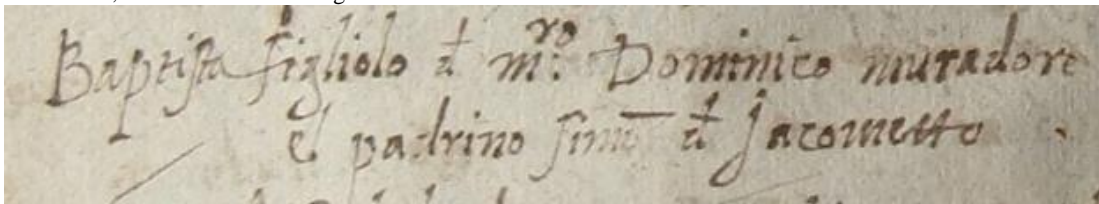 Baptista figliolo đ mro. Dominico muradore
el padrino đ Jacometto